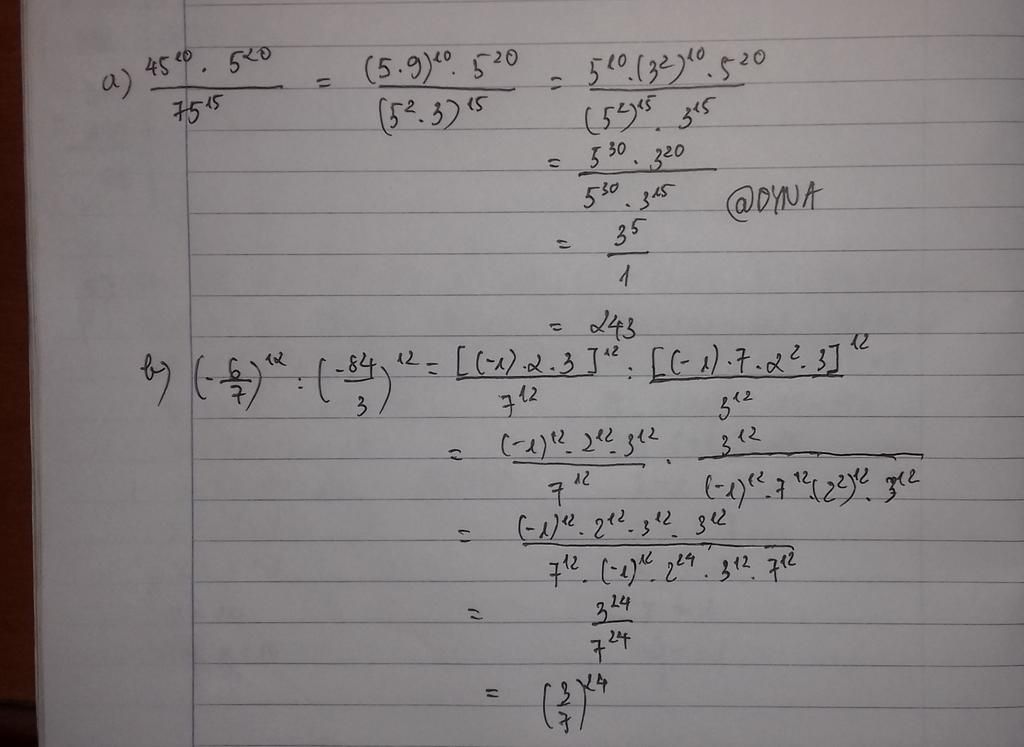 a) \frac{45^{10} \cdot 5^{20}}{75^{15}} = \frac{(5 \cdot 9)^{10} \cdot 5^{20}}{(5^2 \cdot 3)^{15}} = \frac{5^{10} \cdot (3^2)^{10} \cdot 5^{20}}{(5^2)^{15} \cdot 3^{15}}
= \frac{5^{30} \cdot 3^{20}}{5^{30} \cdot 3^{15}} @DYNA
= \frac{3^5}{1}
= 243
b) (-\frac{6}{7})^{12} : (\frac{-84}{3})^{12} = \frac{[(-1) \cdot 2 \cdot 3]^{12}}{7^{12}} : \frac{[(-1) \cdot 7 \cdot 2^2 \cdot 3]^{12}}{3^{12}}
= \frac{(-1)^{12} \cdot 2^{12} \cdot 3^{12}}{7^{12}} \cdot \frac{3^{12}}{(-1)^{12} \cdot 7^{12} \cdot (2^2)^{12} \cdot 3^{12}}
= \frac{(-1)^{12} \cdot 2^{12} \cdot 3^{12} \cdot 3^{12}}{7^{12} \cdot (-1)^{12} \cdot 2^{24} \cdot 3^{12} \cdot 7^{12}}
= \frac{3^{24}}{7^{24}}
= (\frac{3}{7})^{24}